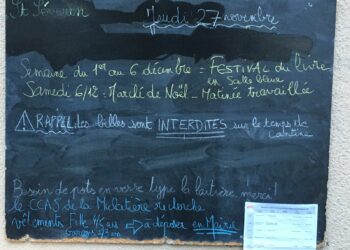 St Séverin
Jeudi 27 novembre
Semaine du 1er au 6 décembre = FESTIVAL du livre
en salle bleue
Samedi 6/12 : Marché de Noël - Matinée travaillée
⚠ RAPPEL les billes sont INTERDITES sur le temps de
cantine
Besoin de pots en verre type la laitière merci!
le CCAS de la Melatière recherche
vêtements fille 4/6 ans → à déposer en Mairie